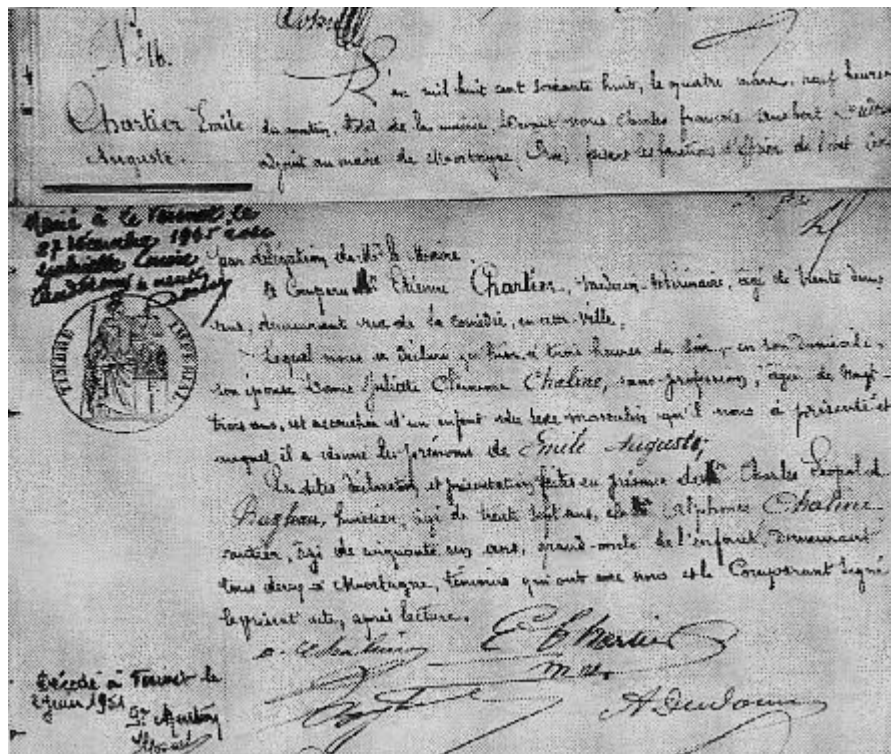 N° 16.
Chartier Emile
Auguste.
L'an mil huit cent soixante huit, le quatre mars, neuf heures
du matin, hôtel de la mairie, devant nous Charles François
adjoint au maire de Mortagne (Orne) faisant les fonctions d'officier de l'état
Marié à le
27 décembre 1945 avec
Gabrielle
TIMBRE IMPÉRIAL
par délégation de Mr le Maire.
A Comparu Mr Etienne Chartier, médecin-vétérinaire, âgé de trente deux
ans, demeurant rue de la comédie, en cette ville,
Lequel nous a déclaré qu'hier à trois heures du soir, en son domicile,
son épouse Dame Juliette Clémence Chaline, sans profession, âgée de vingt-
trois ans, est accouchée d'un enfant du sexe masculin qu'il nous a présenté et
auquel il a donné les prénoms de Emile Auguste,
Les dites déclaration et présentation faites en présence de Mr Charles Léopold
huissier, âgé de trente sept ans, et de Mr Alphonse Chaline
rentier, âgé de cinquante ans, grand-oncle de l'enfant, demeurant
tous deux à Mortagne, témoins qui ont avec nous et le Comparant signé
le présent acte, après lecture.
E Chartier
m. v.
Décédé à le
2 juin 1951